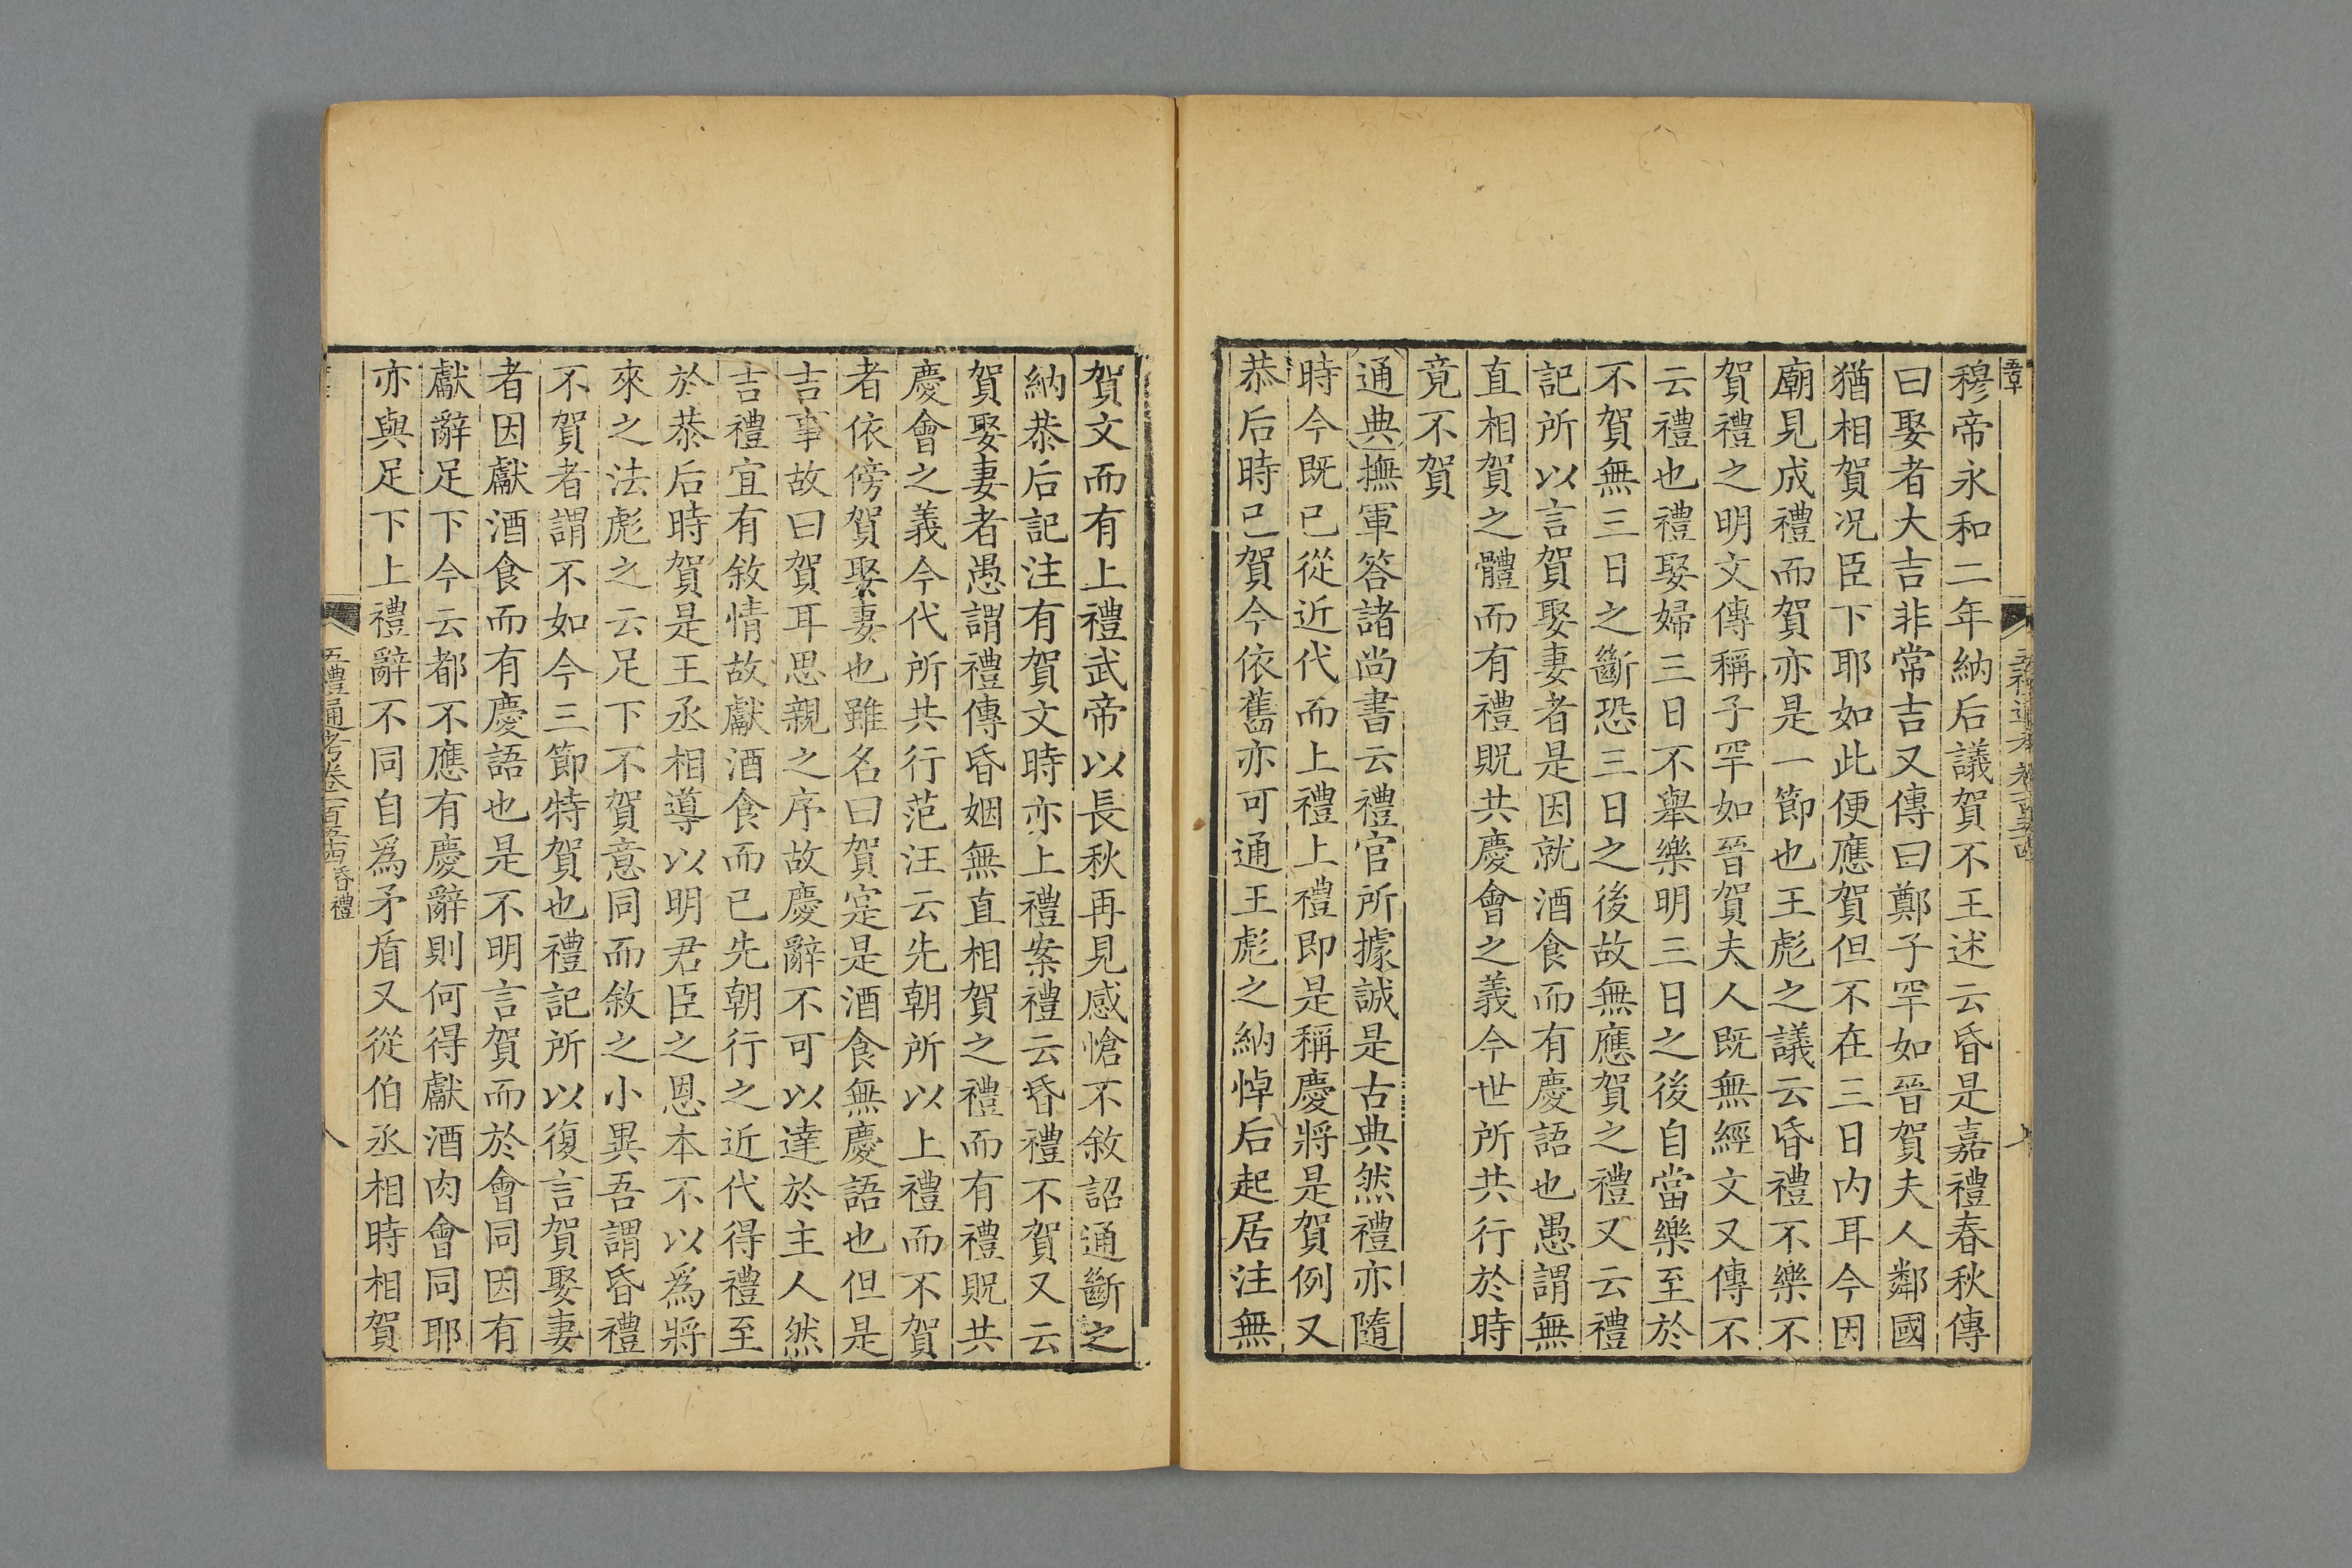 穆帝永和二年納后議賀不王述云昏是嘉禮春秋傳
曰娶者大吉非常吉又傳曰鄭子罕如晉賀夫人鄰國
猶相賀況臣下耶如此便應賀但不在三日內耳今因
廟見成禮而賀亦是一節也王彪之議云昏禮不樂不
賀禮之明文傳稱子罕如晉賀夫人既無經文又傳不
云禮也禮娶婦三日不舉樂明三日之後自當樂至於
不賀無三日之斷恐三日之後故無應賀之禮又云禮
記所以言賀娶妻者是因就酒食而有慶語也愚謂無
直相賀之體而有禮貺共慶會之義今世所共行於時
竟不賀
通典撫軍答諸尚書云禮官所據誠是古典然禮亦隨
時今既已從近代而上禮上禮即是稱慶將是賀例又
恭后時已賀今依舊亦可通王彪之納悼后起居注無
賀文而有上禮武帝以長秋再見感愴不敘詔通斷之
納恭后記注有賀文時亦上禮案禮云昏禮不賀又云
賀娶妻者愚謂禮傳昏姻無直相賀之禮而有禮貺共
慶會之義今代所共行范汪云先朝所以上禮而不賀
者依傍賀娶妻也雖名曰賀寔是酒食無慶語也但是
吉事故曰賀耳思親之序故慶辭不可以達於主人然
吉禮宜有敘情故獻酒食而已先朝行之近代得禮至
於恭后時賀是王丞相導以明君臣之恩本不以爲將
來之法彪之云足下不賀意同而敘之小異吾謂昏禮
不賀者謂不如今三節特賀也禮記所以復言賀娶妻
者因獻酒食而有慶語也是不明言賀而於會同因有
獻辭足下今云都不應有慶辭則何得獻酒肉會同耶
亦與足下上禮辭不同自爲矛盾又從伯丞相時相賀
五禮通考卷一百五十四昏禮
八